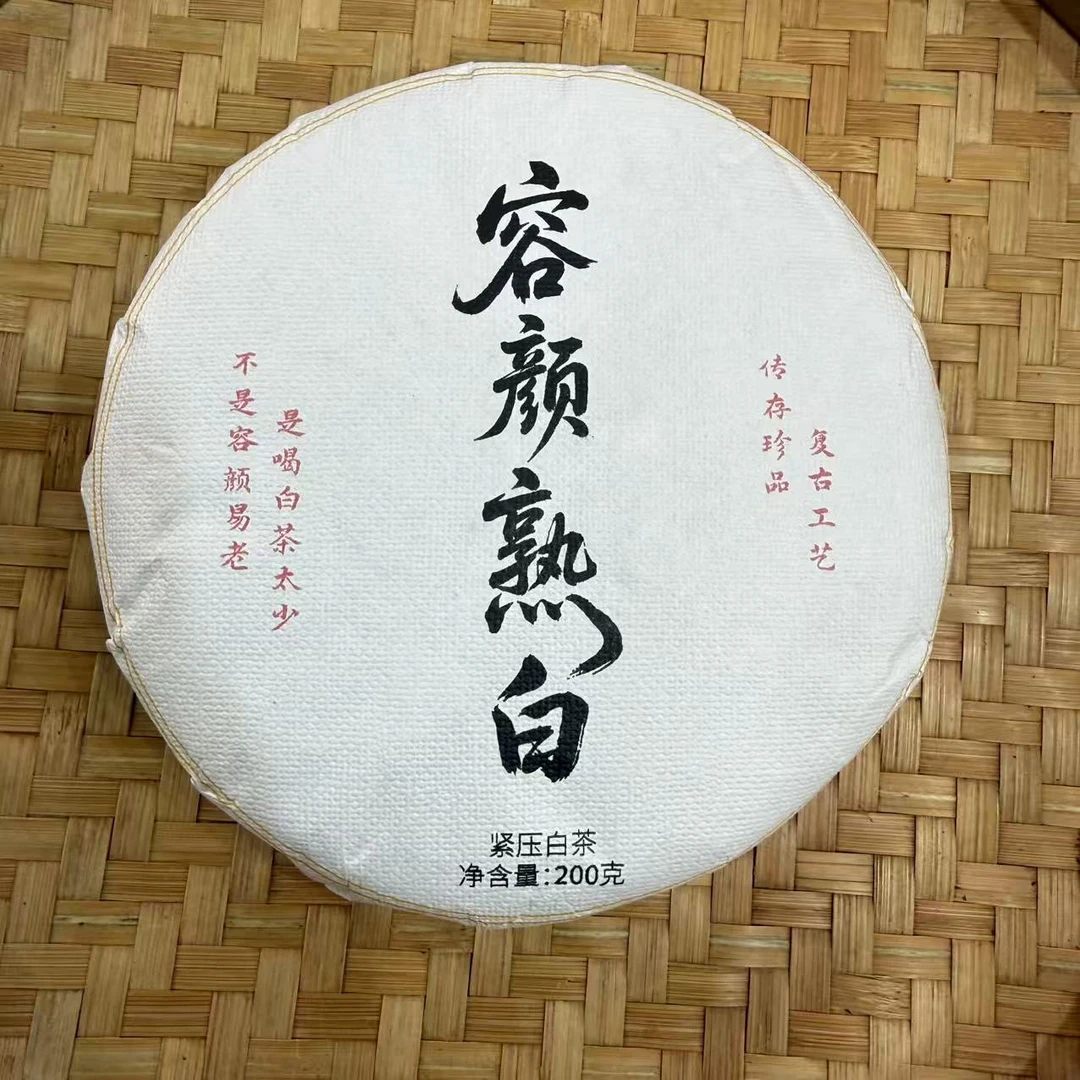 容颜熟白
不是容颜易老
是喝白茶太少
传存珍品
复古工艺
紧压白茶
净含量:200克